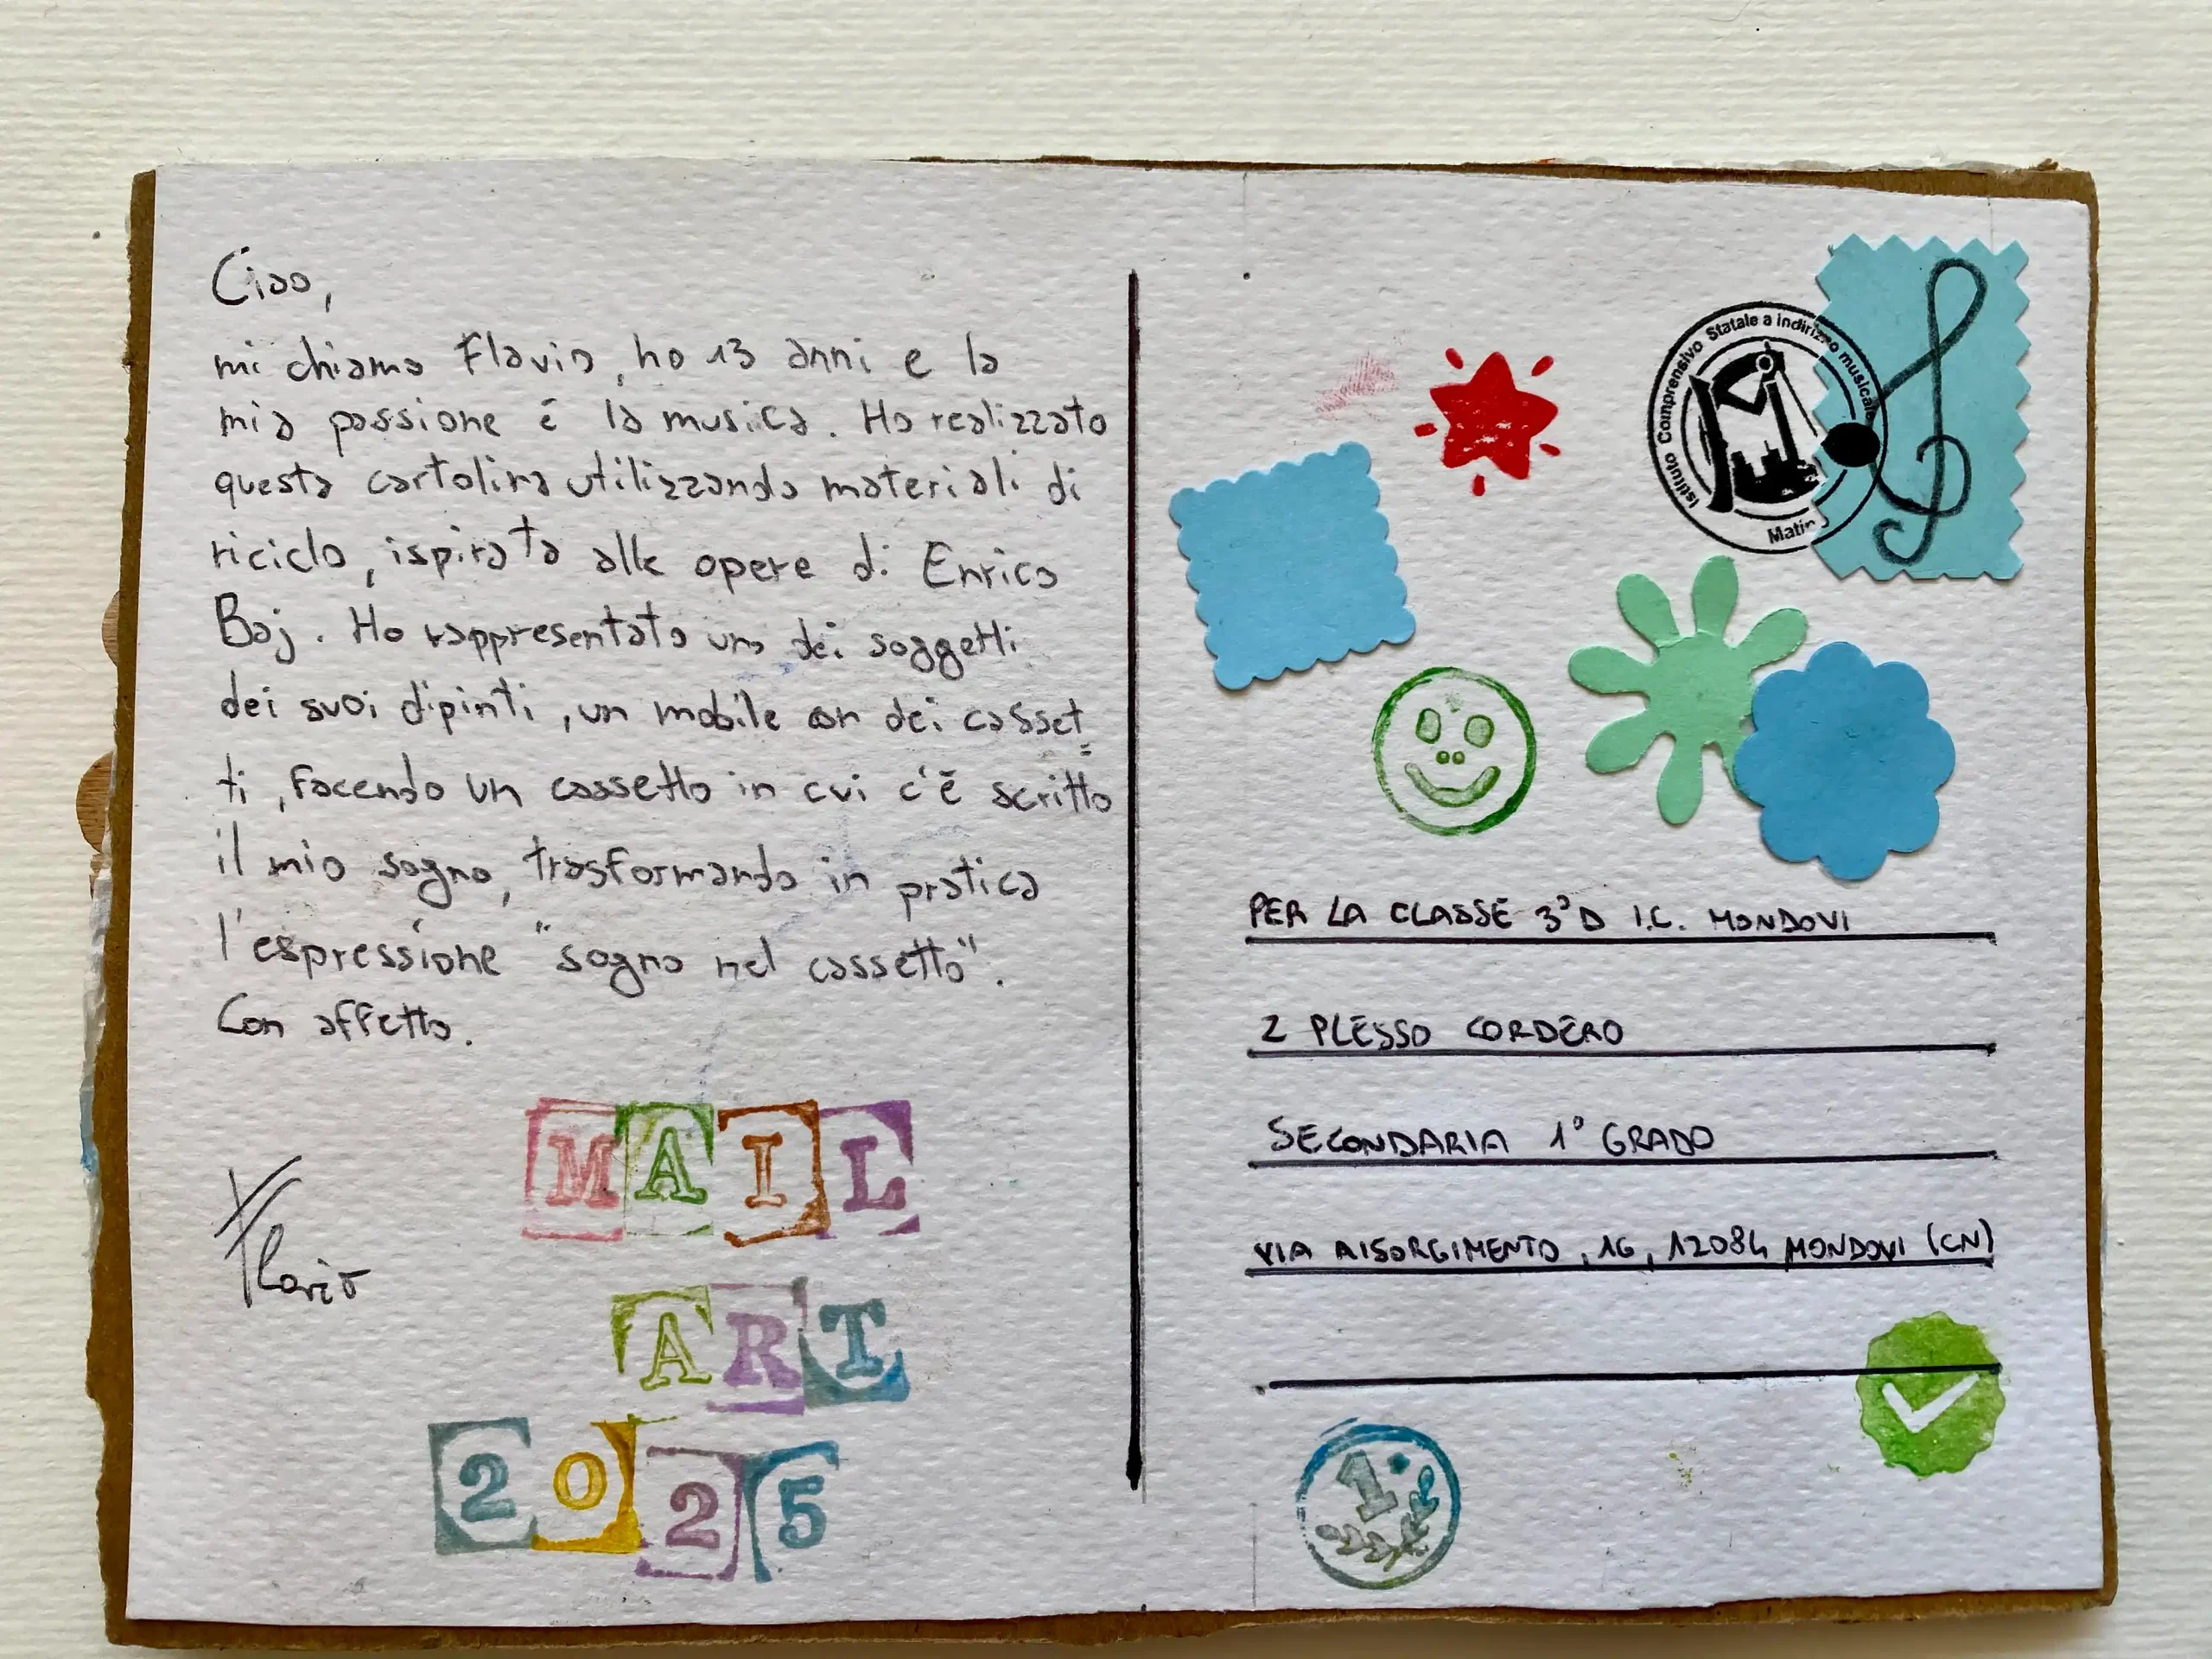 Ciao,
mi chiamo Flavio, ho 13 anni e la
mia passione é la musica. Ho realizzato
questa cartolina utilizzando materiali di
riciclo, ispirata alle opere di Enrico
Baj. Ho rappresentato uno dei soggetti
dei suoi dipinti, un mobile con dei casset
ti, facendo un cassetto in cui c'é scritto
il mio sogno, trasformando in pratica
l'espressione "sogno nel cassetto".
Con affetto.
Flavio
MAIL
ART
2025
Istituto Comprensivo Statale a indirizzo musicale
PER LA CLASSE 3°D I.C. MONDOVI
2 PLESSO CORDERO
SECONDARIA 1° GRADO
VIA RISORGIMENTO, 16, 12084 MONDOVI (CN)
1